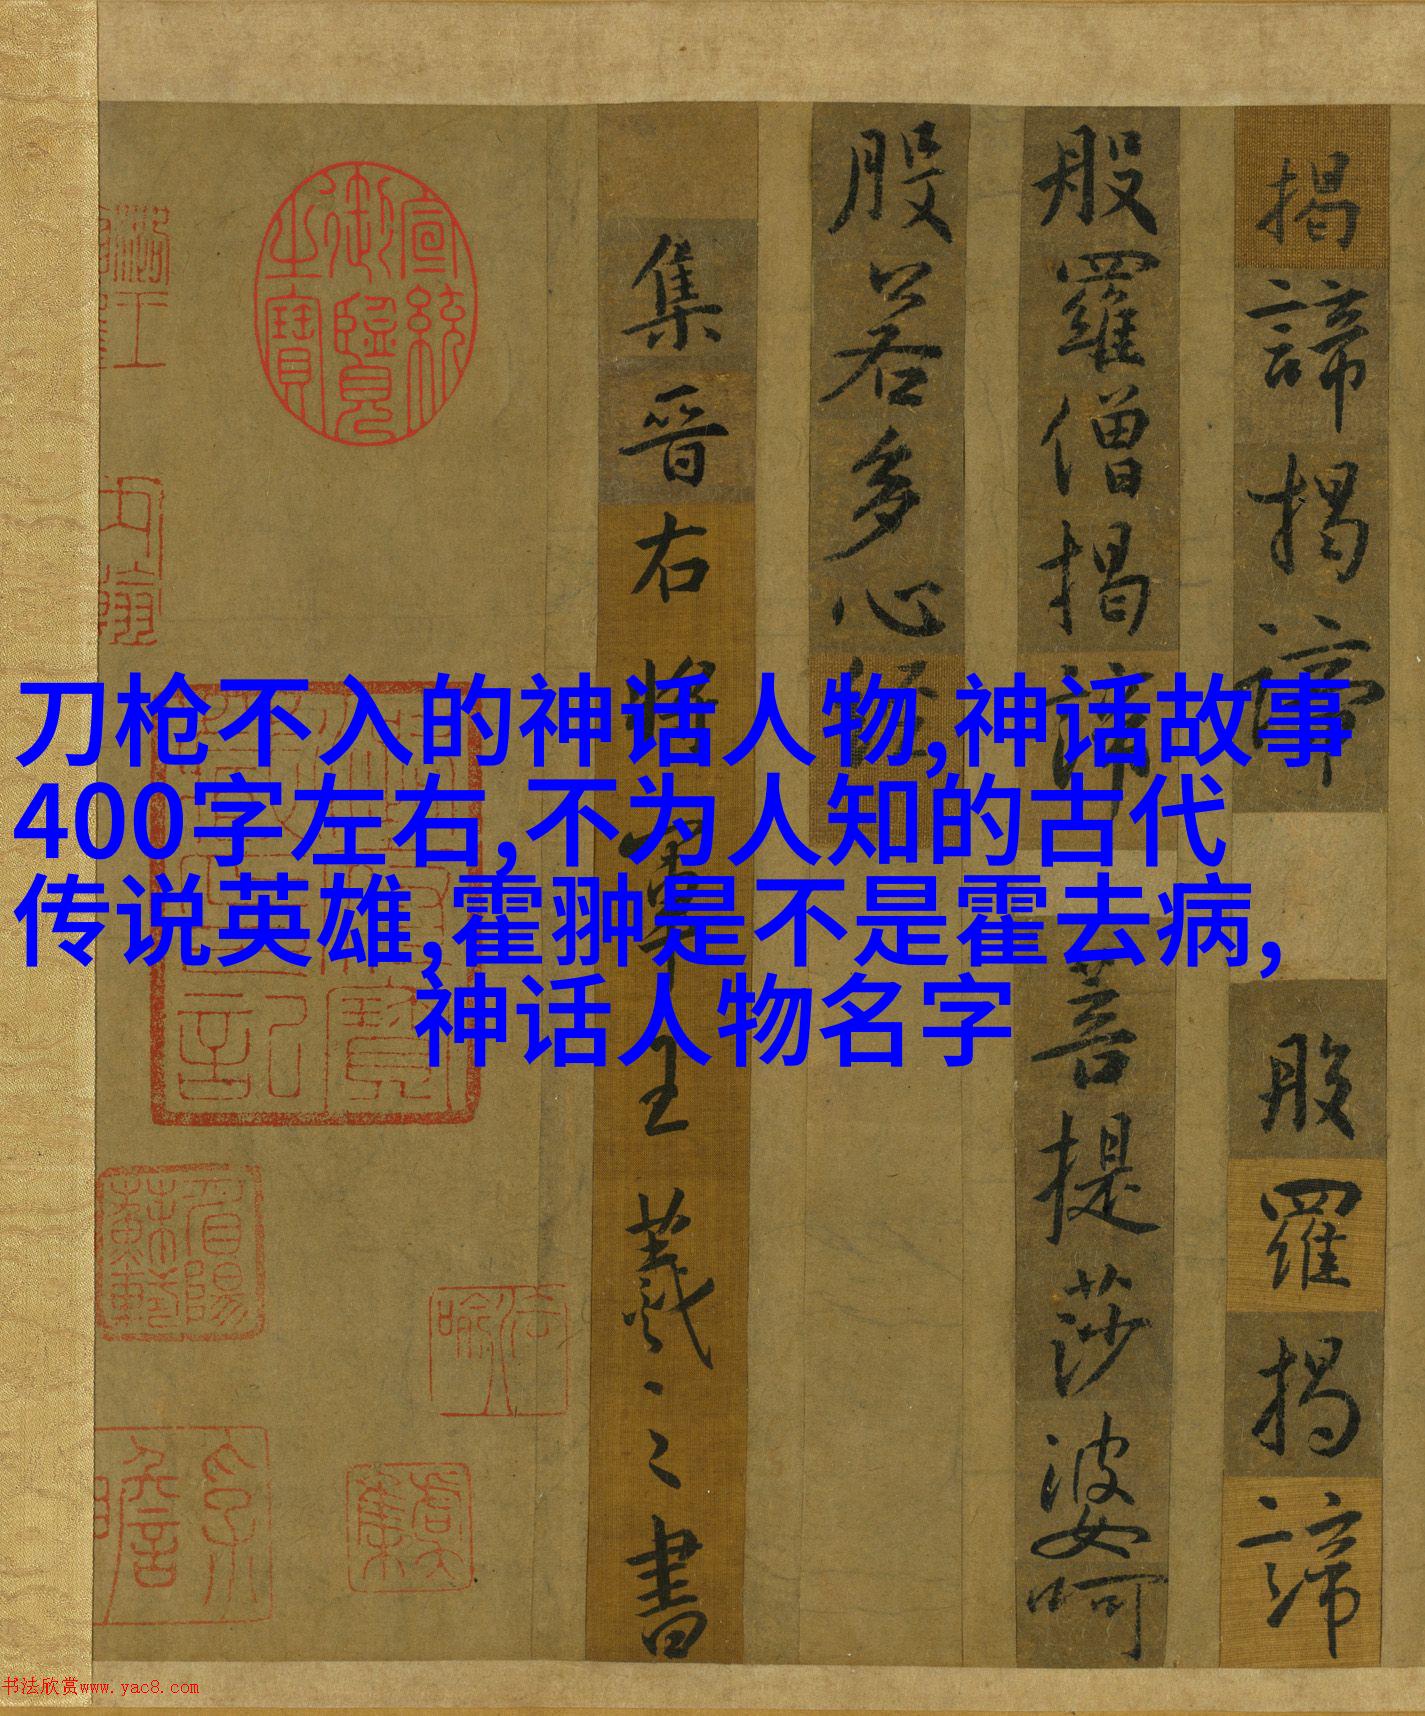 揭諦揭諦 般羅揭諦
般羅僧揭諦 菩提莎婆呵
般若多心經
集晉右將軍王羲之書
宣統御覽之寶
刀枪不入的神话人物,神话故事
400字左右,不为人知的古代
传说英雄,霍翀是不是霍去病,
神话人物名字
书法欣赏www.yac8.com